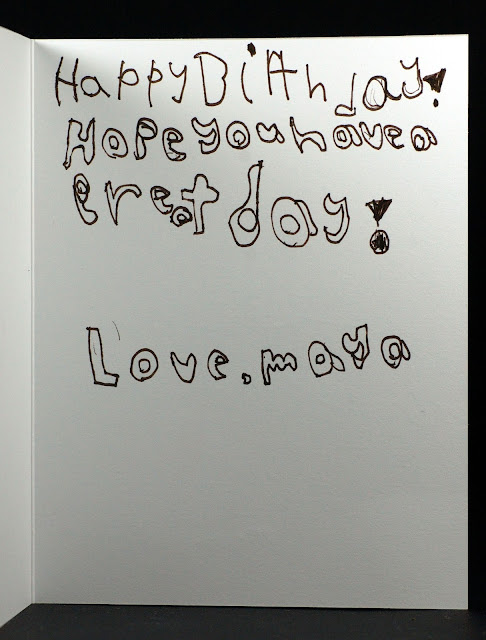 Happy Birthday!
Hope you have a
great day!
Love, maya